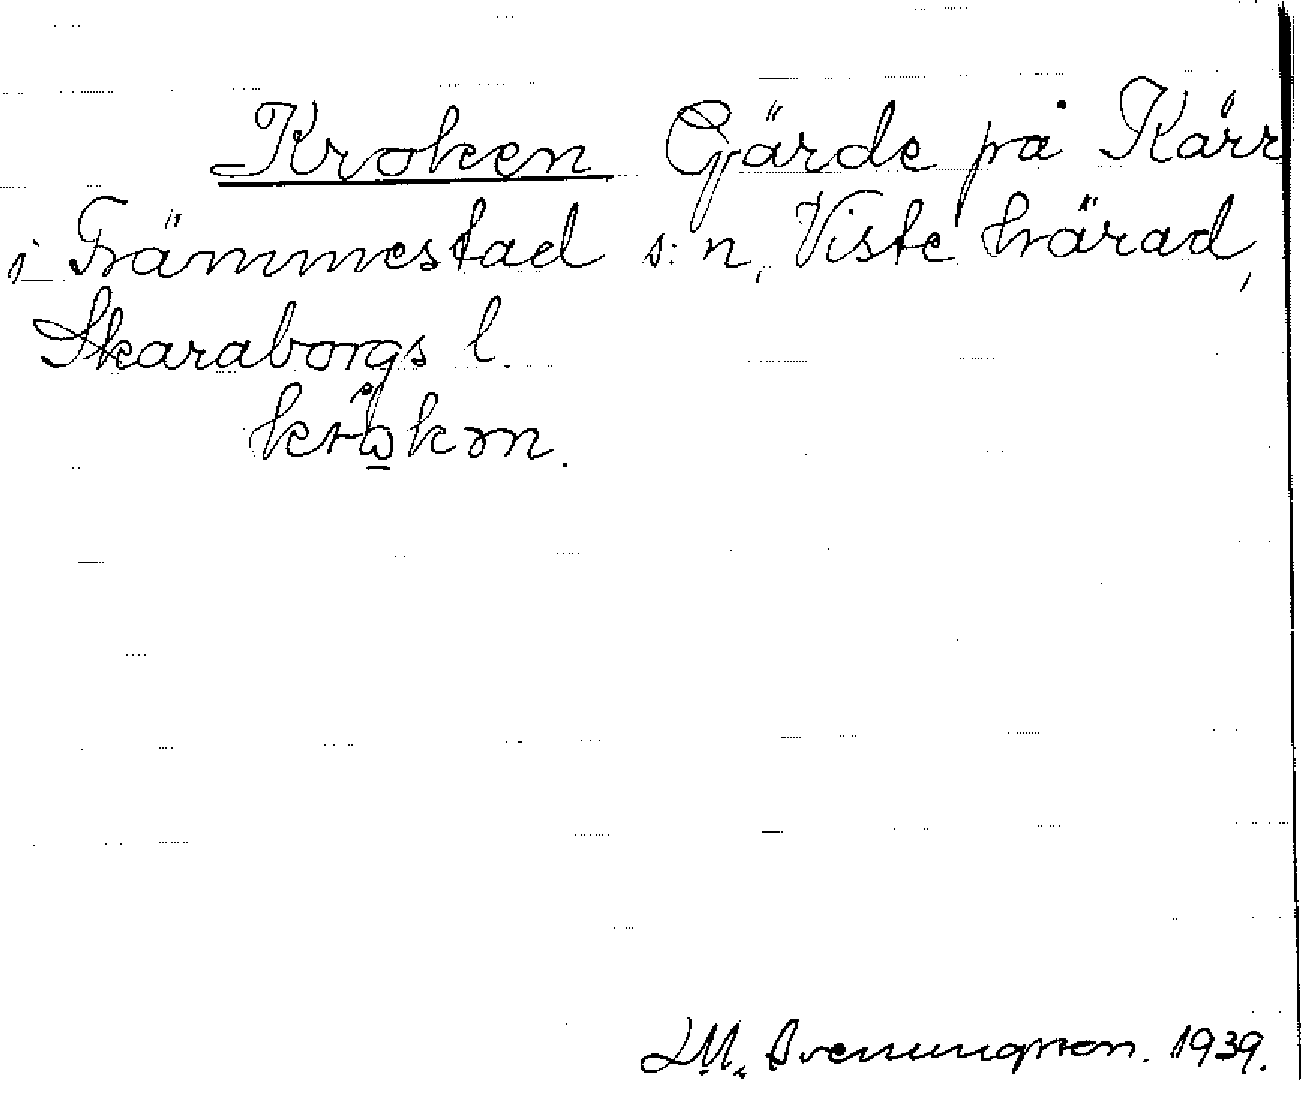 Kroken Gärde på Kärr
i Främmestad s:n, Viste härad,
Skaraborgs l.
krωkɔn.
L.M. Svenungsson. 1939.